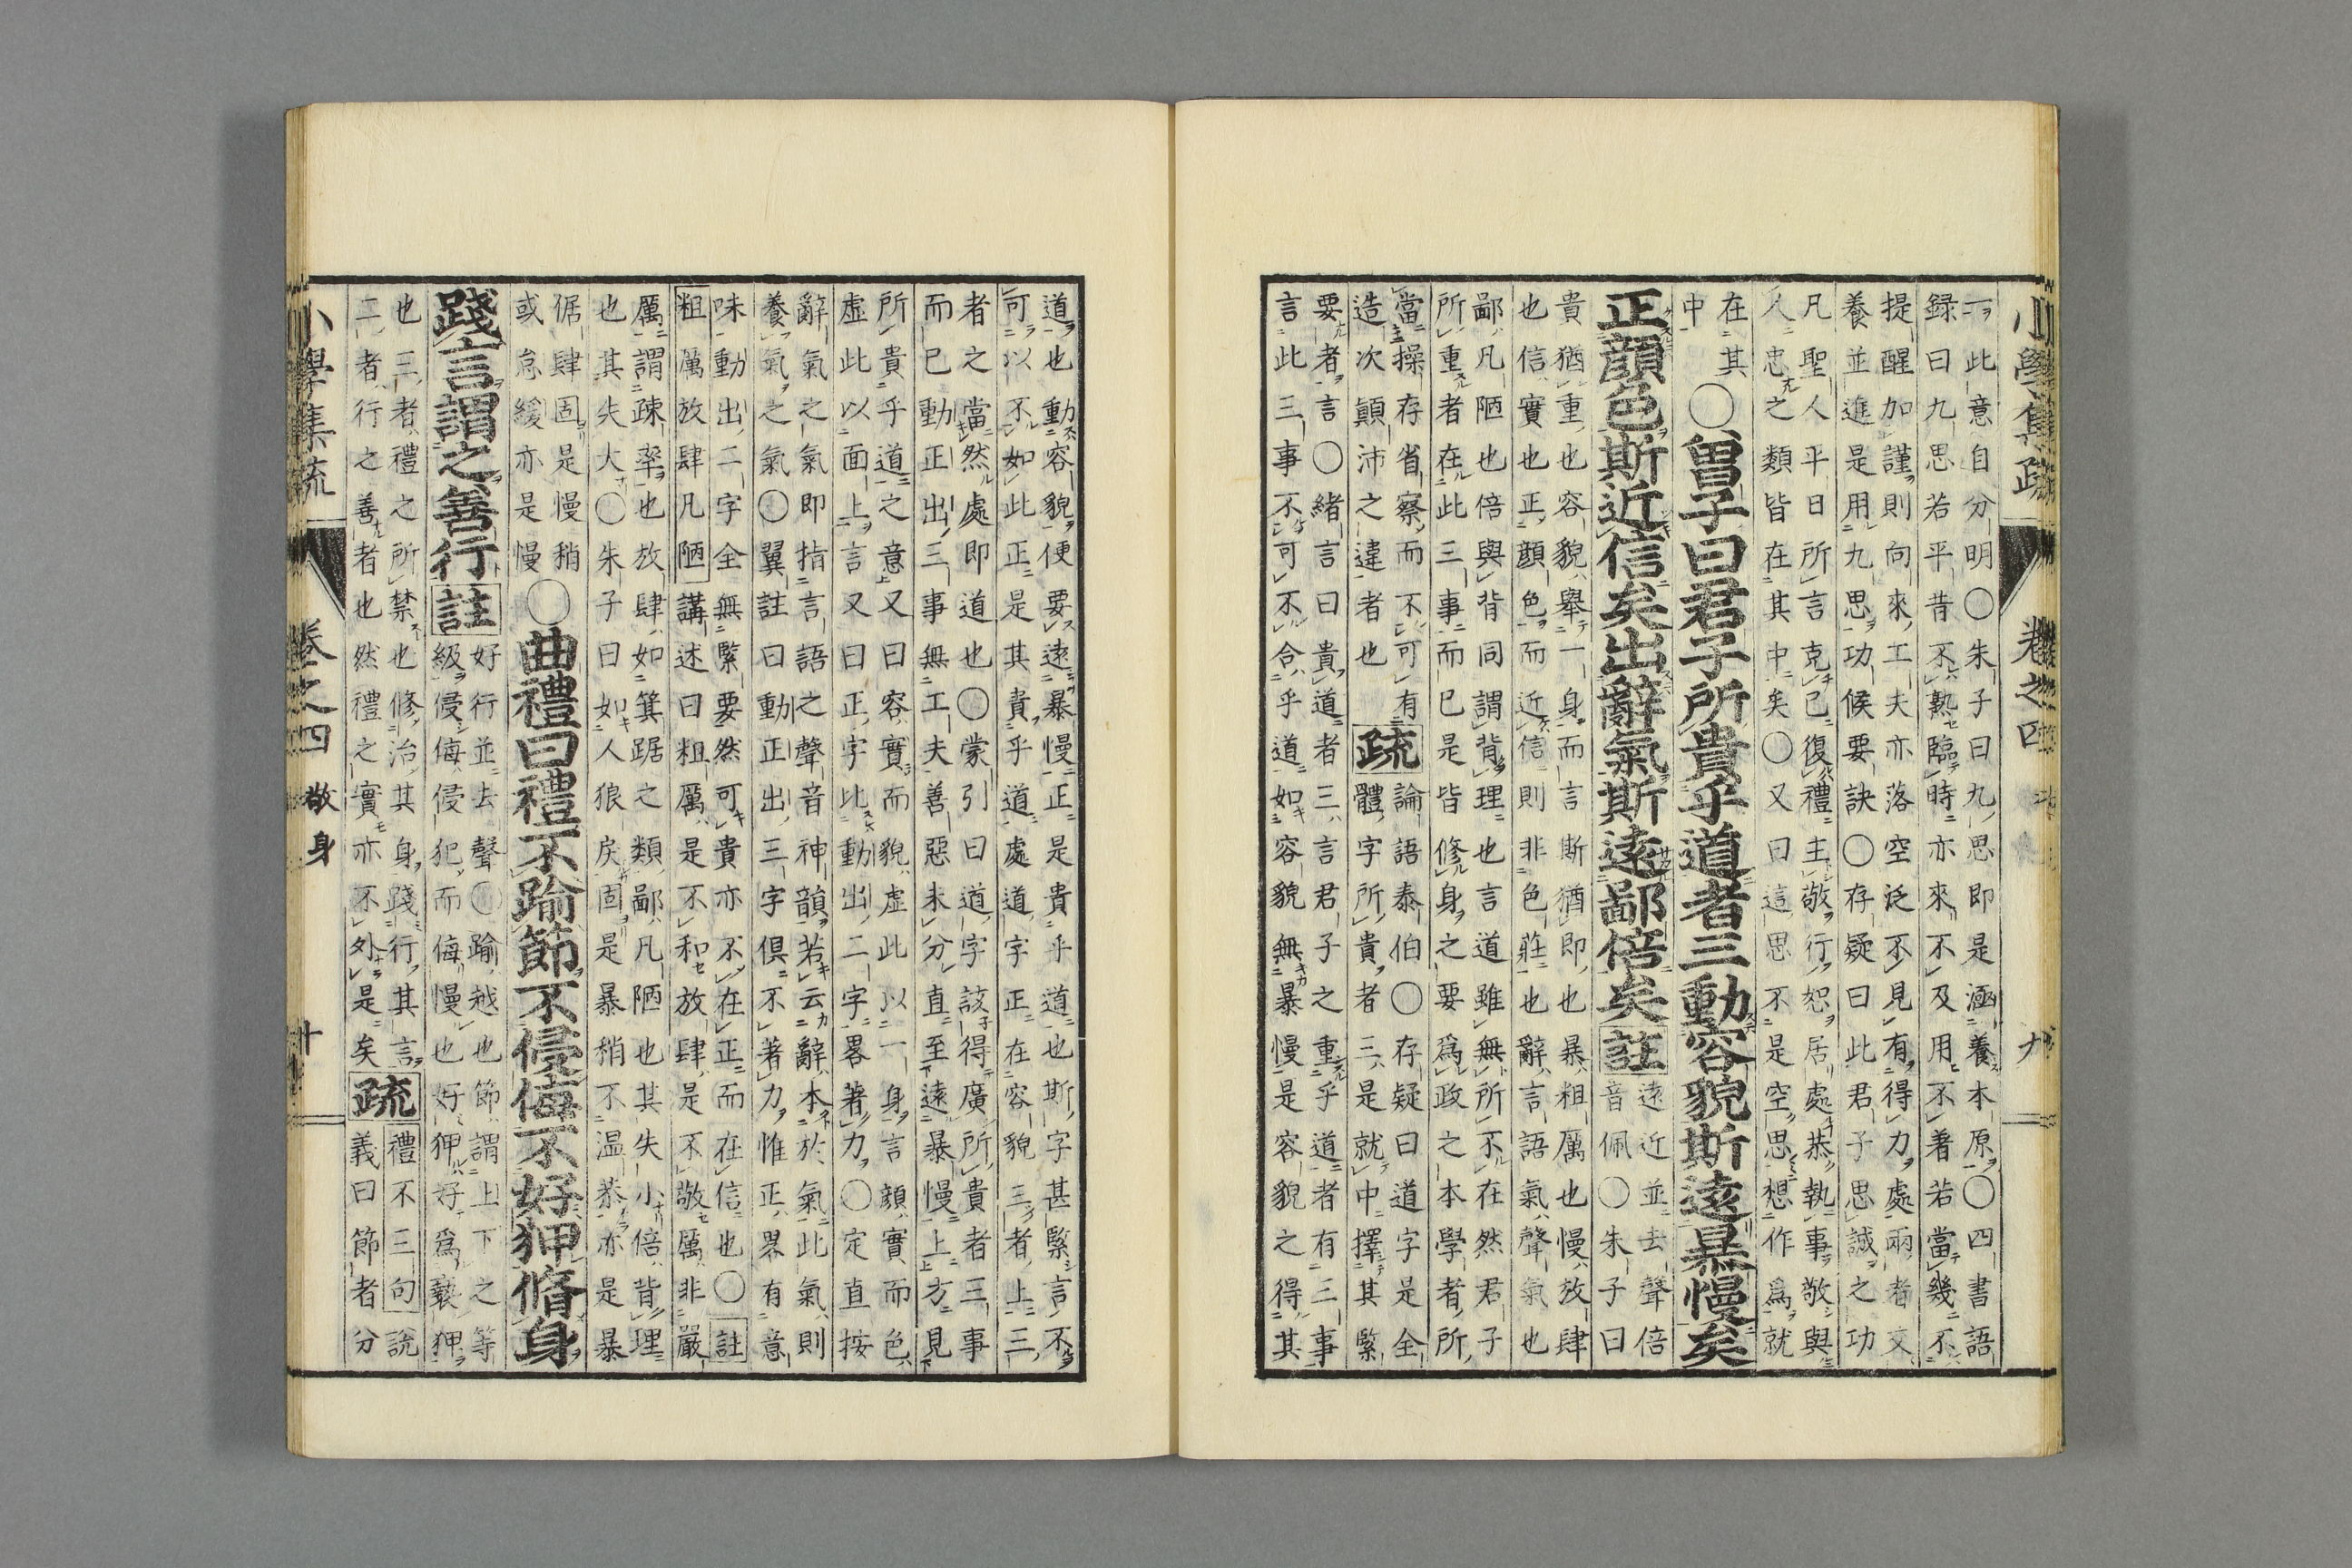 小學集疏 卷之四 九
一此意自分明〇朱子曰九思即是涵養本原〇四書語
録曰九思若平昔不熟臨時亦來不及用不著若當幾不
提醒加謹則向來工夫亦落空泛不見有得力處兩者交
養並進是用九思功候要訣〇存疑曰此君子思誠之功
凡聖人平日所言克己復禮主敬行恕居處恭執事敬與
人忠之類皆在其中矣〇又曰這思不是空思想作爲就
在其
中
〇曾子曰君子所貴乎道者三動容貌斯遠暴慢矣
正顔色斯近信矣出辭氣斯遠鄙倍矣註
遠近並去聲倍
音佩〇朱子曰
貴猶重也容貌舉一身而言斯猶即也暴粗厲也慢放肆
也信實也正顔色而近信則非色莊也辭言語氣聲氣也
鄙凡陋也倍與背同謂背理也言道雖無所不在然君子
所重者在此三事而已是皆修身之要爲政之本學者所
當操存省察而不可有
造次顛沛之違者也
疏
論語泰伯〇存疑曰道字是全
體字所貴者三是就中擇其緊
要者言〇緒言曰貴道者三言君子之重乎道者有三事
言此三事不可不合乎道如容貌無暴慢是容貌之得其
道也動容貌便要遠暴慢正是貴乎道也斯字甚緊言不
可以不如此正是其貴乎道處道字正在容貌三者上三
者之當然處即道也〇蒙引曰道字該得廣所貴者三事
而已動正出三事無工夫善惡未分直至遠暴慢上方見
所貴乎道之意又曰容實而貌虚此以一身言顔實而色
虚此以面上言又曰正字比動出二字畧著力〇定直按
辭氣之氣即指言語之聲音神韻若云辭本於氣此氣則
養氣之氣〇翼註曰動正出三字倶不著力惟正畧有意
味動出二字全無緊要然可貴亦不在正而在信也〇註
粗厲放肆凡陋講述曰粗厲是不和放肆是不敬厲非嚴
厲謂疎率也放肆如箕踞之類鄙凡陋也其失小倍背理
也其失大〇朱子曰如人狼戾固是暴稍不温恭亦是暴
倨肆固是慢稍
或怠緩亦是慢
〇曲禮曰禮不踰節不侵侮不好狎脩身
踐言謂之善行註
好行並去聲〇踰越也節謂上下之等
級侵侮侵犯而侮慢也好狎好爲褻狎
也三者禮之所禁也修治其身踐行其言
二者行之善者也然禮之實亦不外是矣
疏
禮不三句說
義曰節者分
小學集疏 卷之四 敬身 十